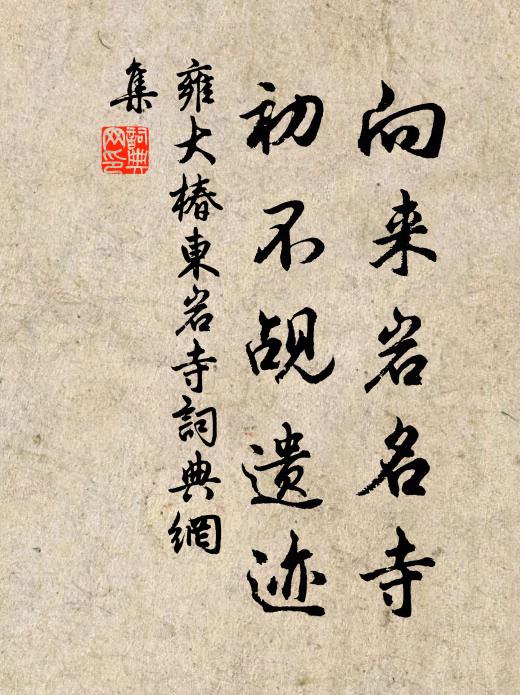 向来岩名寺
初不觇遗迹
雍大椿東岩寺詞典網
集
詞典网印